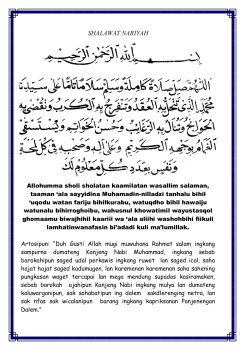 SHALAWAT NARIYAH
بِسْمِ اللهِ الرَّحْمٰنِ الرَّحِيْمِ
اَللّٰهُمَّ صَلِّ صَلَاةً كَامِلَةً وَسَلِّمْ سَلَامًا تَامًّا عَلَى سَيِّدِنَا
مُحَمَّدٍ الَّذِيْ تَنْحَلُّ بِهِ الْعُقَدُ وَتَنْفَرِجُ بِهِ الْكُرَبُ وَتُقْضَى بِهِ
الْحَوَائِجُ وَتُنَالُ بِهِ الرَّغَائِبُ وَحُسْنُ الْخَوَاتِمِ وَيُسْتَسْقَى
الْغَمَامُ بِوَجْهِهِ الْكَرِيْمِ وَعَلَى اٰلِهِ وَصَحْبِهِ فِيْ كُلِّ لَمْحَةٍ
وَنَفَسٍ بِعَدَدِ كُلِّ مَعْلُوْمٍ لَكَ
Allohumma sholi sholatan kaamilatan wasallim salaman,
taaman 'ala sayyidina Muhamadin-nilladzi tanhalu bihil
'uqodu watan fariju bihilkurabu, watuqdho bihil hawaiju
watunalu bihirroghoibu, wahusnul khowatimii wayustasqol
ghomaamu biwajhihil kaariii wa 'ala aliihi washohbihi fiikuli
lamhatinwanafasin bi'adadi kuli ma'lumillak.
Artosipun: "Duh Gusti Allah mugi muwuhana Rahmat salam ingkang
sampurna dumateng Kanjeng Nabi Muhammad, ingkang sebab
barokahipun saged udal perkawis ingkang ruwet lan saged ical, saha
hajat hajat saged kadumugen, lan karemenan karemenan saha sahening
pungkasan waget tercapai lan mega mendung supados kasirameken,
sebab barokah ajahipun Kanjeng Nabi ingkang mulya lan dumateng
kaluwarganipun, lan sahabatipun ing dalem sakdlerenging netra, lan
sak nfas sak wicalanipun barang ingkang kapriksanan Panjenengan
Dalem."